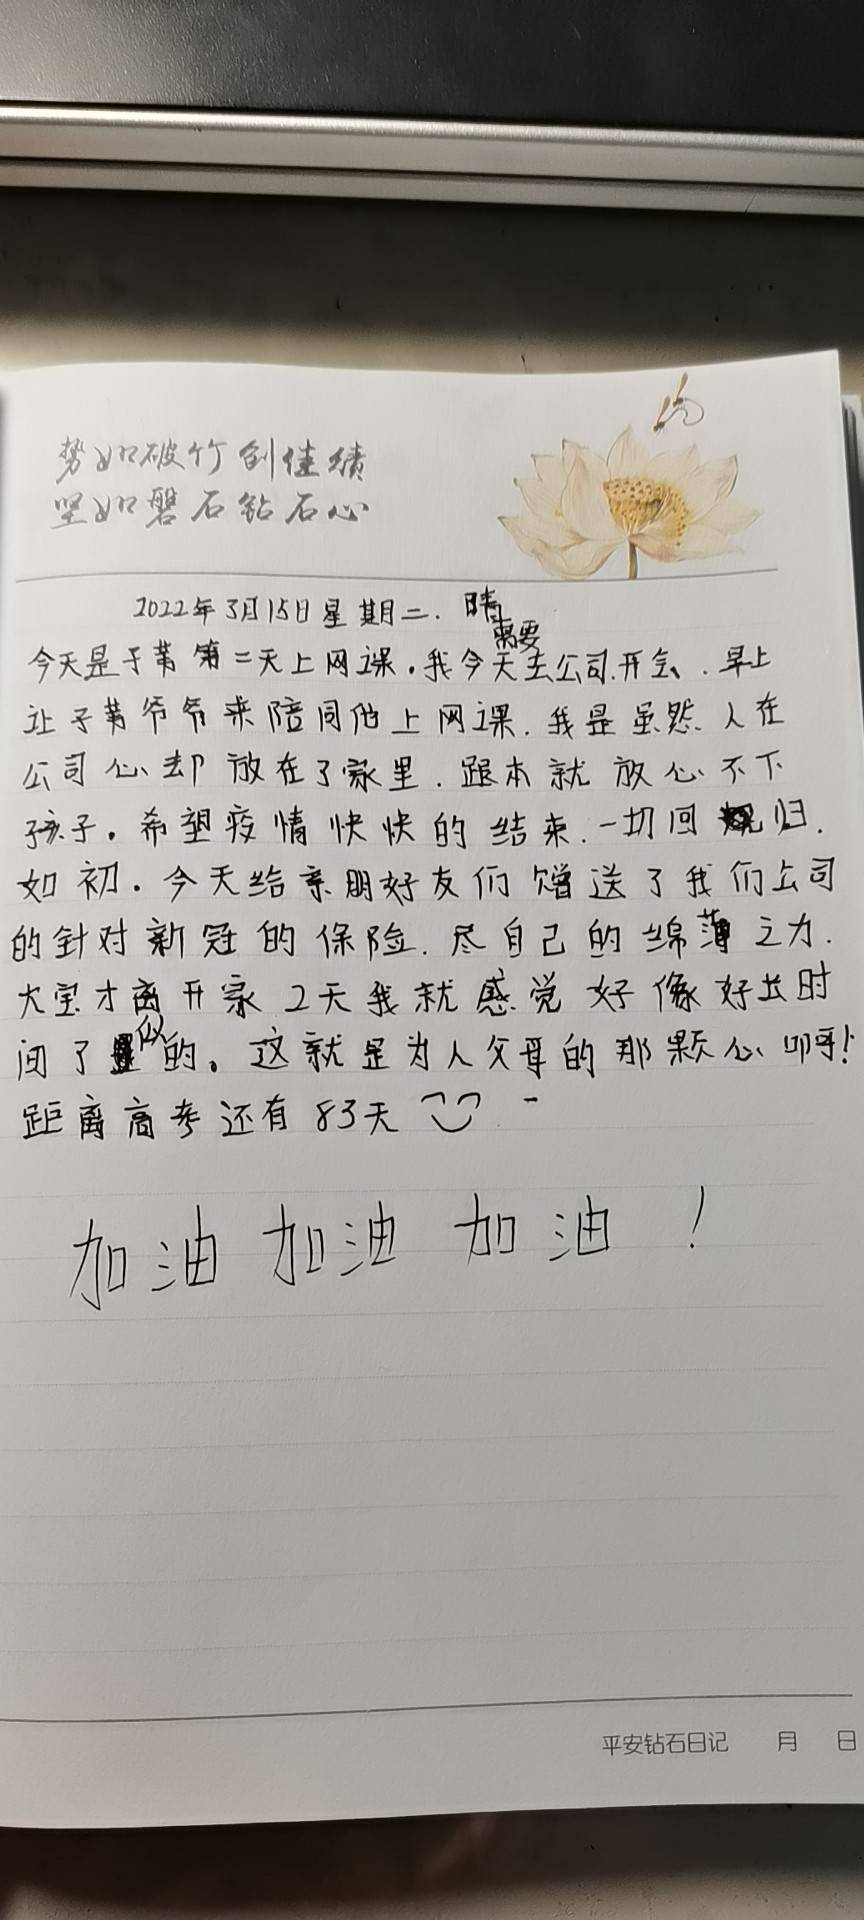 势如破竹创佳绩
坚如磐石钻石心
2022年3月15日星期二.晴
需要
今天是子苇第二天上网课。我今天去公司开会.早上
让子苇爷爷来陪同他上网课.我是虽然人在
公司心却放在了家里.跟本就放心不下
孩子。希望疫情快快的结束.一切回归.
如初.今天给亲朋好友们赠送了我们公司
的针对新冠的保险.尽自己的绵薄之力.
大宝才离开家2天我就感觉好像好长时
间了似的。这就是为人父母的那颗心叩呀!
距离高考还有83天
加油加油加油!
平安钻石日记 月 日